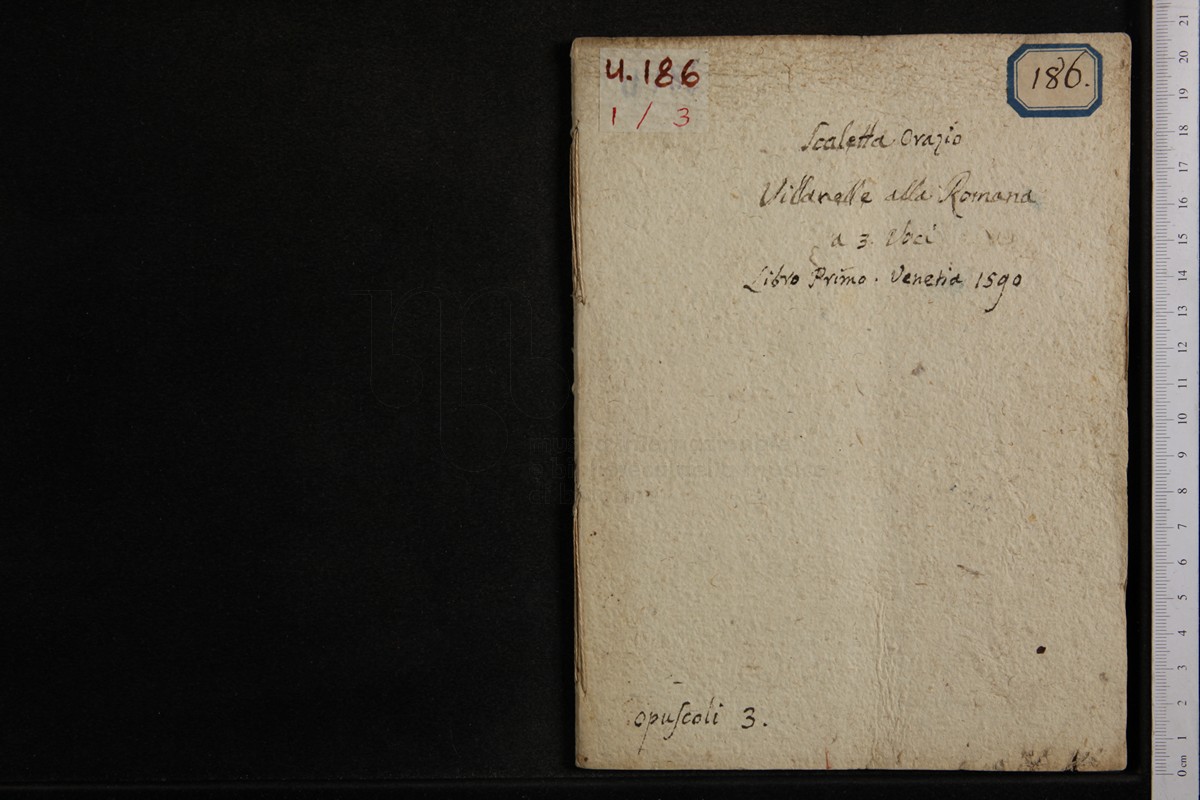 U.186
1 / 3
186.
Scaletta Orazio
Villanelle alla Romana
a 3. Voci
Libro Primo. Venetia 1590
opuscoli 3.
0 cm 1 2 3 4 5 6 7 8 9 10 11 12 13 14 15 16 17 18 19 20 21